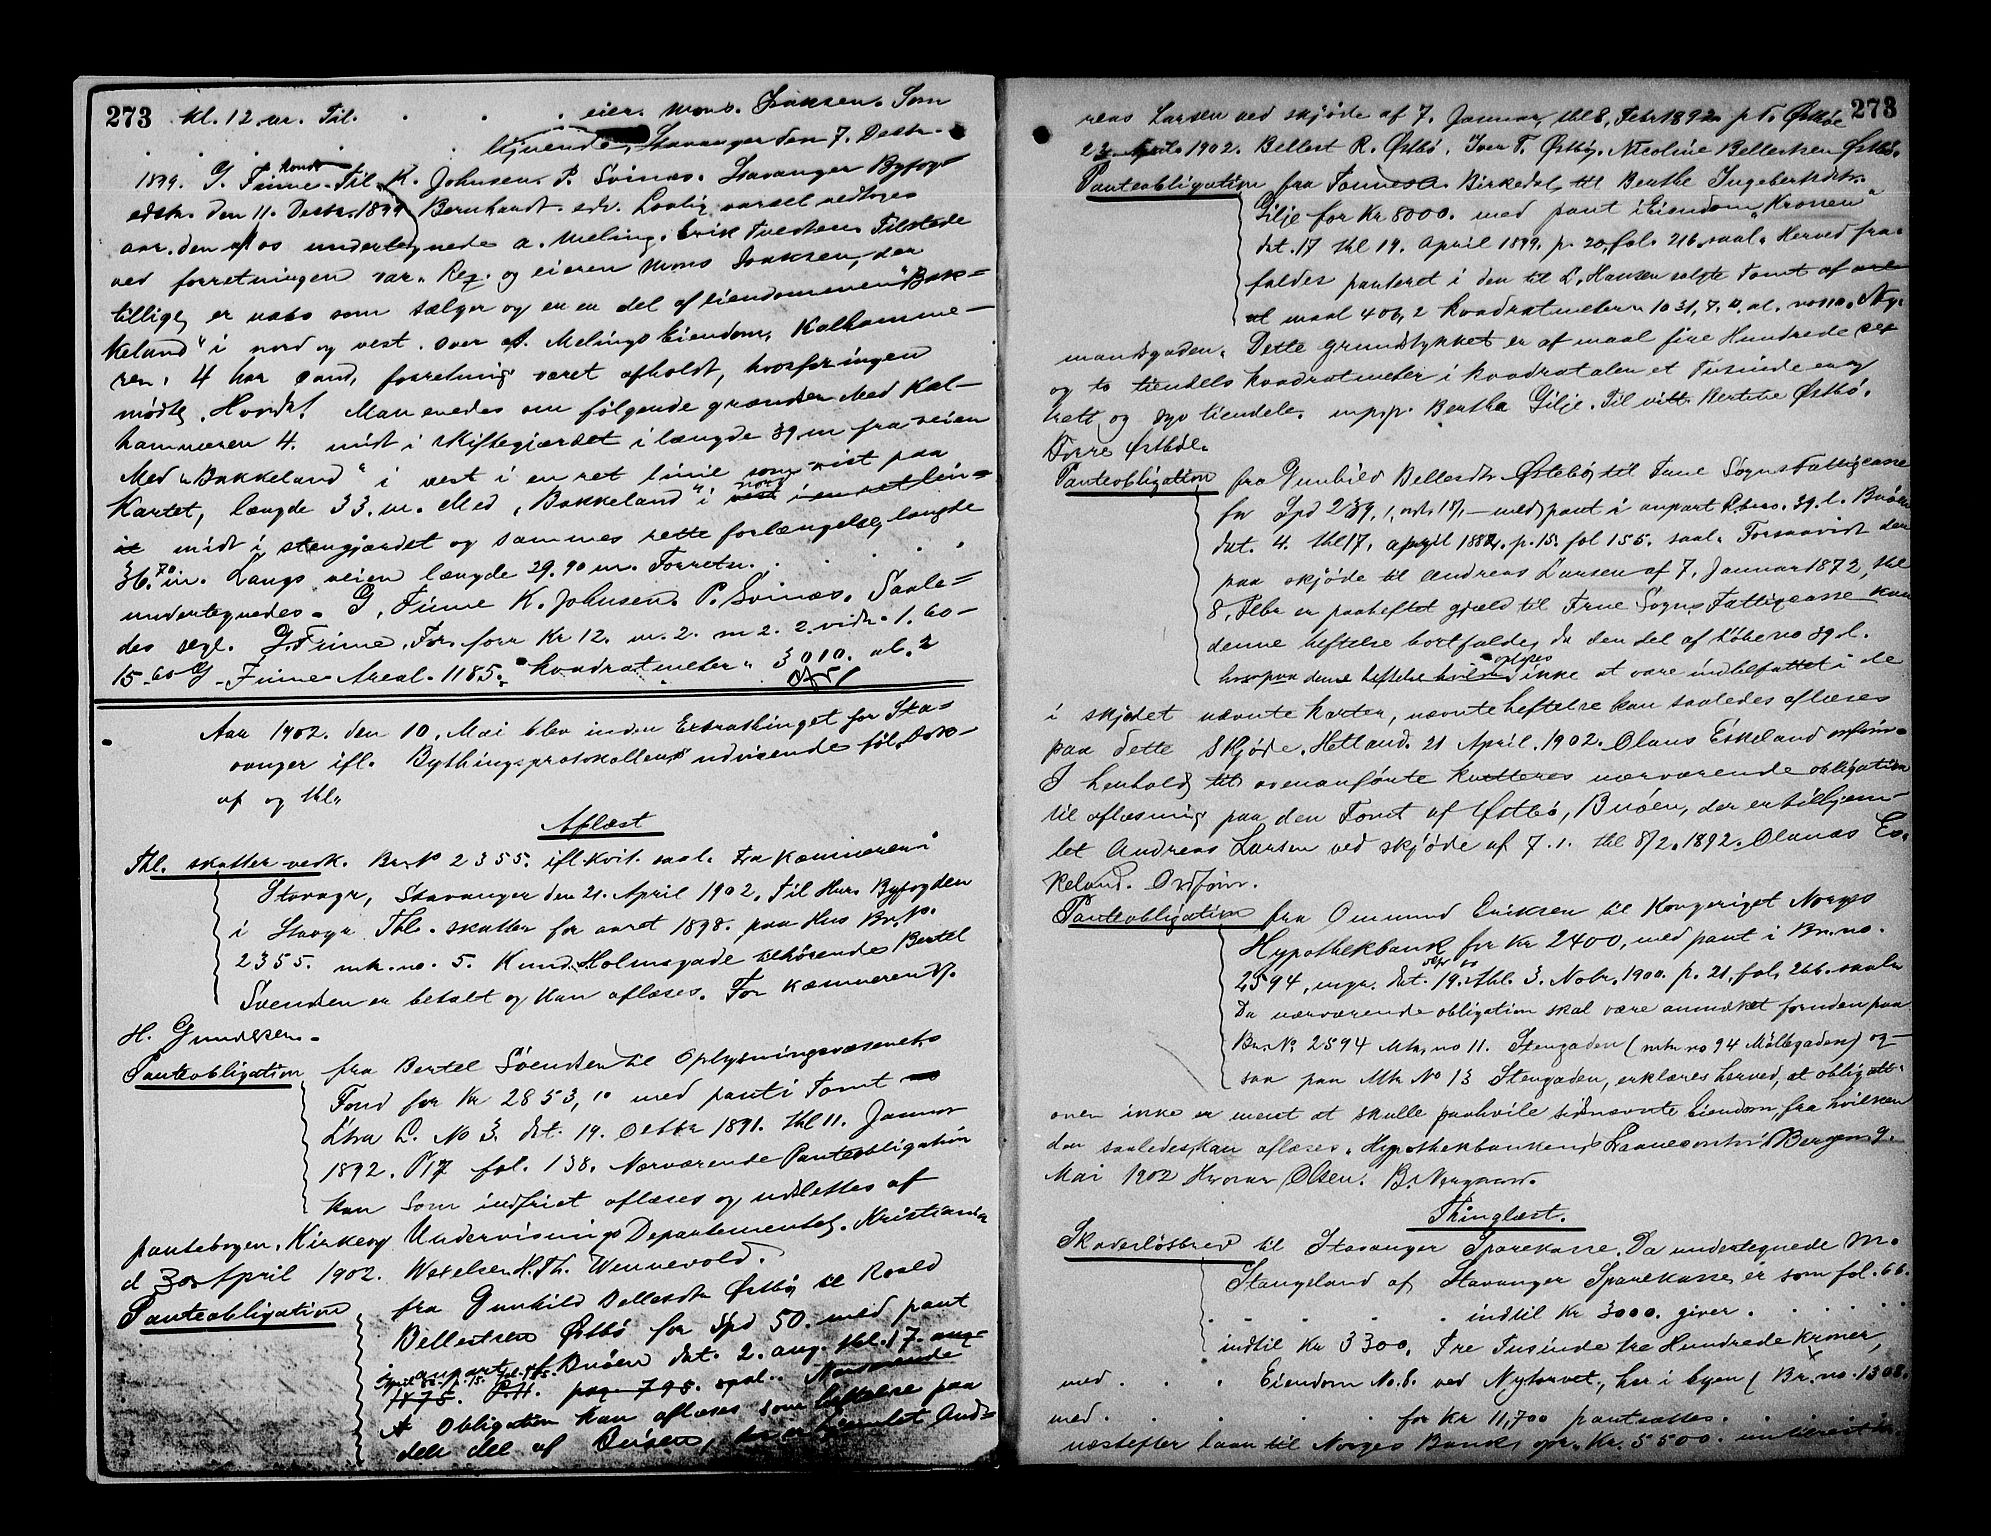 273 kl. 12 m. Til. . . . eier Mons Isaksen. Som
. . . . lignende, Stavanger den 7. Destr.
1899. G. Finne konst. Til K. Johnsen. P. Svinæs. Stavanger Byfog-
edktr. den 11. Destr. 1899 Bernhardt edv. Lovlig varsel vedtoges
aar. den af os undertegnede A. Meling. Erik Tvedten. Tilstede
ved forretningen var. Req. og eieren Mons Isaksen, der
tillige er nabo som sælger og er en del af eiendommen "Bak-
keland" i nord og vest. over A. Melings Eiendom, Kalhamme-
ren, 4 har forretning været afholdt, hvorfor ingen
mødte. Hovdet. Man enedes om følgende grændser Med Kal-
hammeren 4. midt i skiftegjærdet i længde 39 m fra veien
Med "Bakkeland" i vest i en ret linie som vist paa
Kartet, længde 33. m. Med "Bakkeland" i vest nord i en ret lin-
it midt i stengjærdet og sammes rette forlængelse længde
36.70 m. Langs veien længde 29.90 m. Forretn. . . . .
undertegnedes. G. Finne K. Johnsen. P. Svinæs. Saale-
des segl. G. Finne. For. forr Kr 12. m. 2. m 2. 2. vidn. 1.60-
15-60 G Finne Areal. 1185. kvadratmeter. 3010. al. 2
Aar 1902. den 10. Mai blev inden Extrathinget for Sta-
vanger ifl. Bythingsprotokollens udvisende føl. Dok-
af og thl.
Aflæst
Thl. skatter vedk. Br. No 2355. ifl. kvit. saal. Fra Kæmneren i
Stavgr, Stavanger den 21. April 1902. Til Hrr. Byfogden
i Stavgr Thl. skatter for aaret 1898. paa Hus Br. No.
2355. mtr. no. 5. Knud Holmsgade tilhørende Bertel
Svendsen er betalt og kan aflæses. For Kæmneren
H. Gundersen.
Panteobligation fra Bertel Svendsen til Oplysningsvæsenets
Fond for Kr 2853,10 med pant i Tomt
Ltra L. No 3. dat. 19. Octbr 1891. thl 11. Januar
1892. P 17 fol. 138. Nærværende Panteobligation
kan som indfriet aflæses og udslettes af
pantebogen. Kirke og Undervisnings Departementet, Kristiania
d 30 April 1902. Wexelsen. H. Th. Wennevold.
Panteobligation fra Gunhild Bellesdtr Østbø til Roald
Bellestsen Østbø for Spd 50. med pant
i anpart af Buøen dat. 2. aug. thl. 17. aug
1875. P. 11. pag 795. saal. Nærværende
Obligation kan aflæses som heftelse paa
den del af Buøen, der er hjemlet And-
273
reas Larsen ved skjøde af 7. Januar, thl 8. Febr 1892 p. t. Østbø
23 April 1902. Bellest R. Østbø. Iver T. Østbø. Nicoline Bellestsen Østbø.
Panteobligation fra Tønnes A. Birkedal til Berthe Ingebretsdtr.
Gilje for Kr 8000. med pant i Eiendom "Kronen"
dat. 17 thl 19. April 1899. p. 20. fol. 216. saal. Herved fra-
faldes panteret i den til L. Hansen solgte Tomt af are-
al maal 406,2 kvadratmeter 1031,7. □ al. Ny-
mandsgaden. Dette grundstykket er af maal fire Hundrede sex
og to tiendels kvadratmeter i kvadratalen et Tusinde en og
trett og syv tiendele. m.p.p. Bertha Gilje. Til vitt. Bertine Østbø.
Tørre Østbø.
Panteobligation fra Gunhild Bellesdtr Østebø til Frue Sogns Fattigcasse
for Spd 239,1, ort. 18,- med pant i anpart Lbno. 39. l. Buøen
dat. 4. thl 17. april 1882. p. 15. fol 155. saal. Forsaavidt der
paa skjøde til Andreas Larsen af 7. Januar 1872, thl
8. Febr er paaheftet gjæld til Frue Sogns Fattigcasse kan
denne heftelse bortfalde, da den del af Løbeno 39. l.
hvorpaa denne heftelse hviler oplyses ikke at være indbefattet i de
i skjødet nævnte karter, nævnte heftelse kan saaledes aflæses
paa dette Skjøde. Hetland. 21 April. 1902. Olaus Eskeland ordfør.
I henhold til ovenanførte kvitteres nærværende obligation
til aflæsning paa den Tomt af Østbø, Buøen, der er tilhjem-
let Andreas Larsen ved skjøde af 7. 1. thl 8/2. 1892. Olaus Es-
keland. Ordfører.
Panteobligation fra Ommund Eriksen til Kongeriget Norges
Hypothekbank for Kr 2400, med pant i Br. no.
2594, m.gr. dat. 19. Septbr thl. 3. Nobr. 1900. p. 21. fol. 266. saal.
Da nærværende obligation skal være anmærket foruden paa
Br. No 2594 Mtr. no 11. Stengaden (mtr no 94 Møllegaden) og-
saa paa Mtr No 13 Stengaden, erklæres herved, at obligati-
onen ikke er ment at skulle paahvile sidnævnte Eiendom, fra hvilken
den saaledes kan aflæses. Hypothekbankens Laanekontor i Bergen 9.
Mai 1902 Olsen. B. Nergaard.
Thinglæst.
Skadesløsbrev til Stavanger Sparekasse. Da undertegnede M.
Stangeland af Stavanger Sparekasse er som fol. 66.
. . . . . indtil Kr 3000. giver . . . .
indtil Kr 3300. Tre Tusinde tre Hundrede Kroner,
med . . . Eiendom No. 8. ved Nytorvet, her i byen (Br. no. 1308.
med . . . . . for Kr 11,700 pantsattes.
næstefter laan til Norges Bank opr. Kr. 5500.